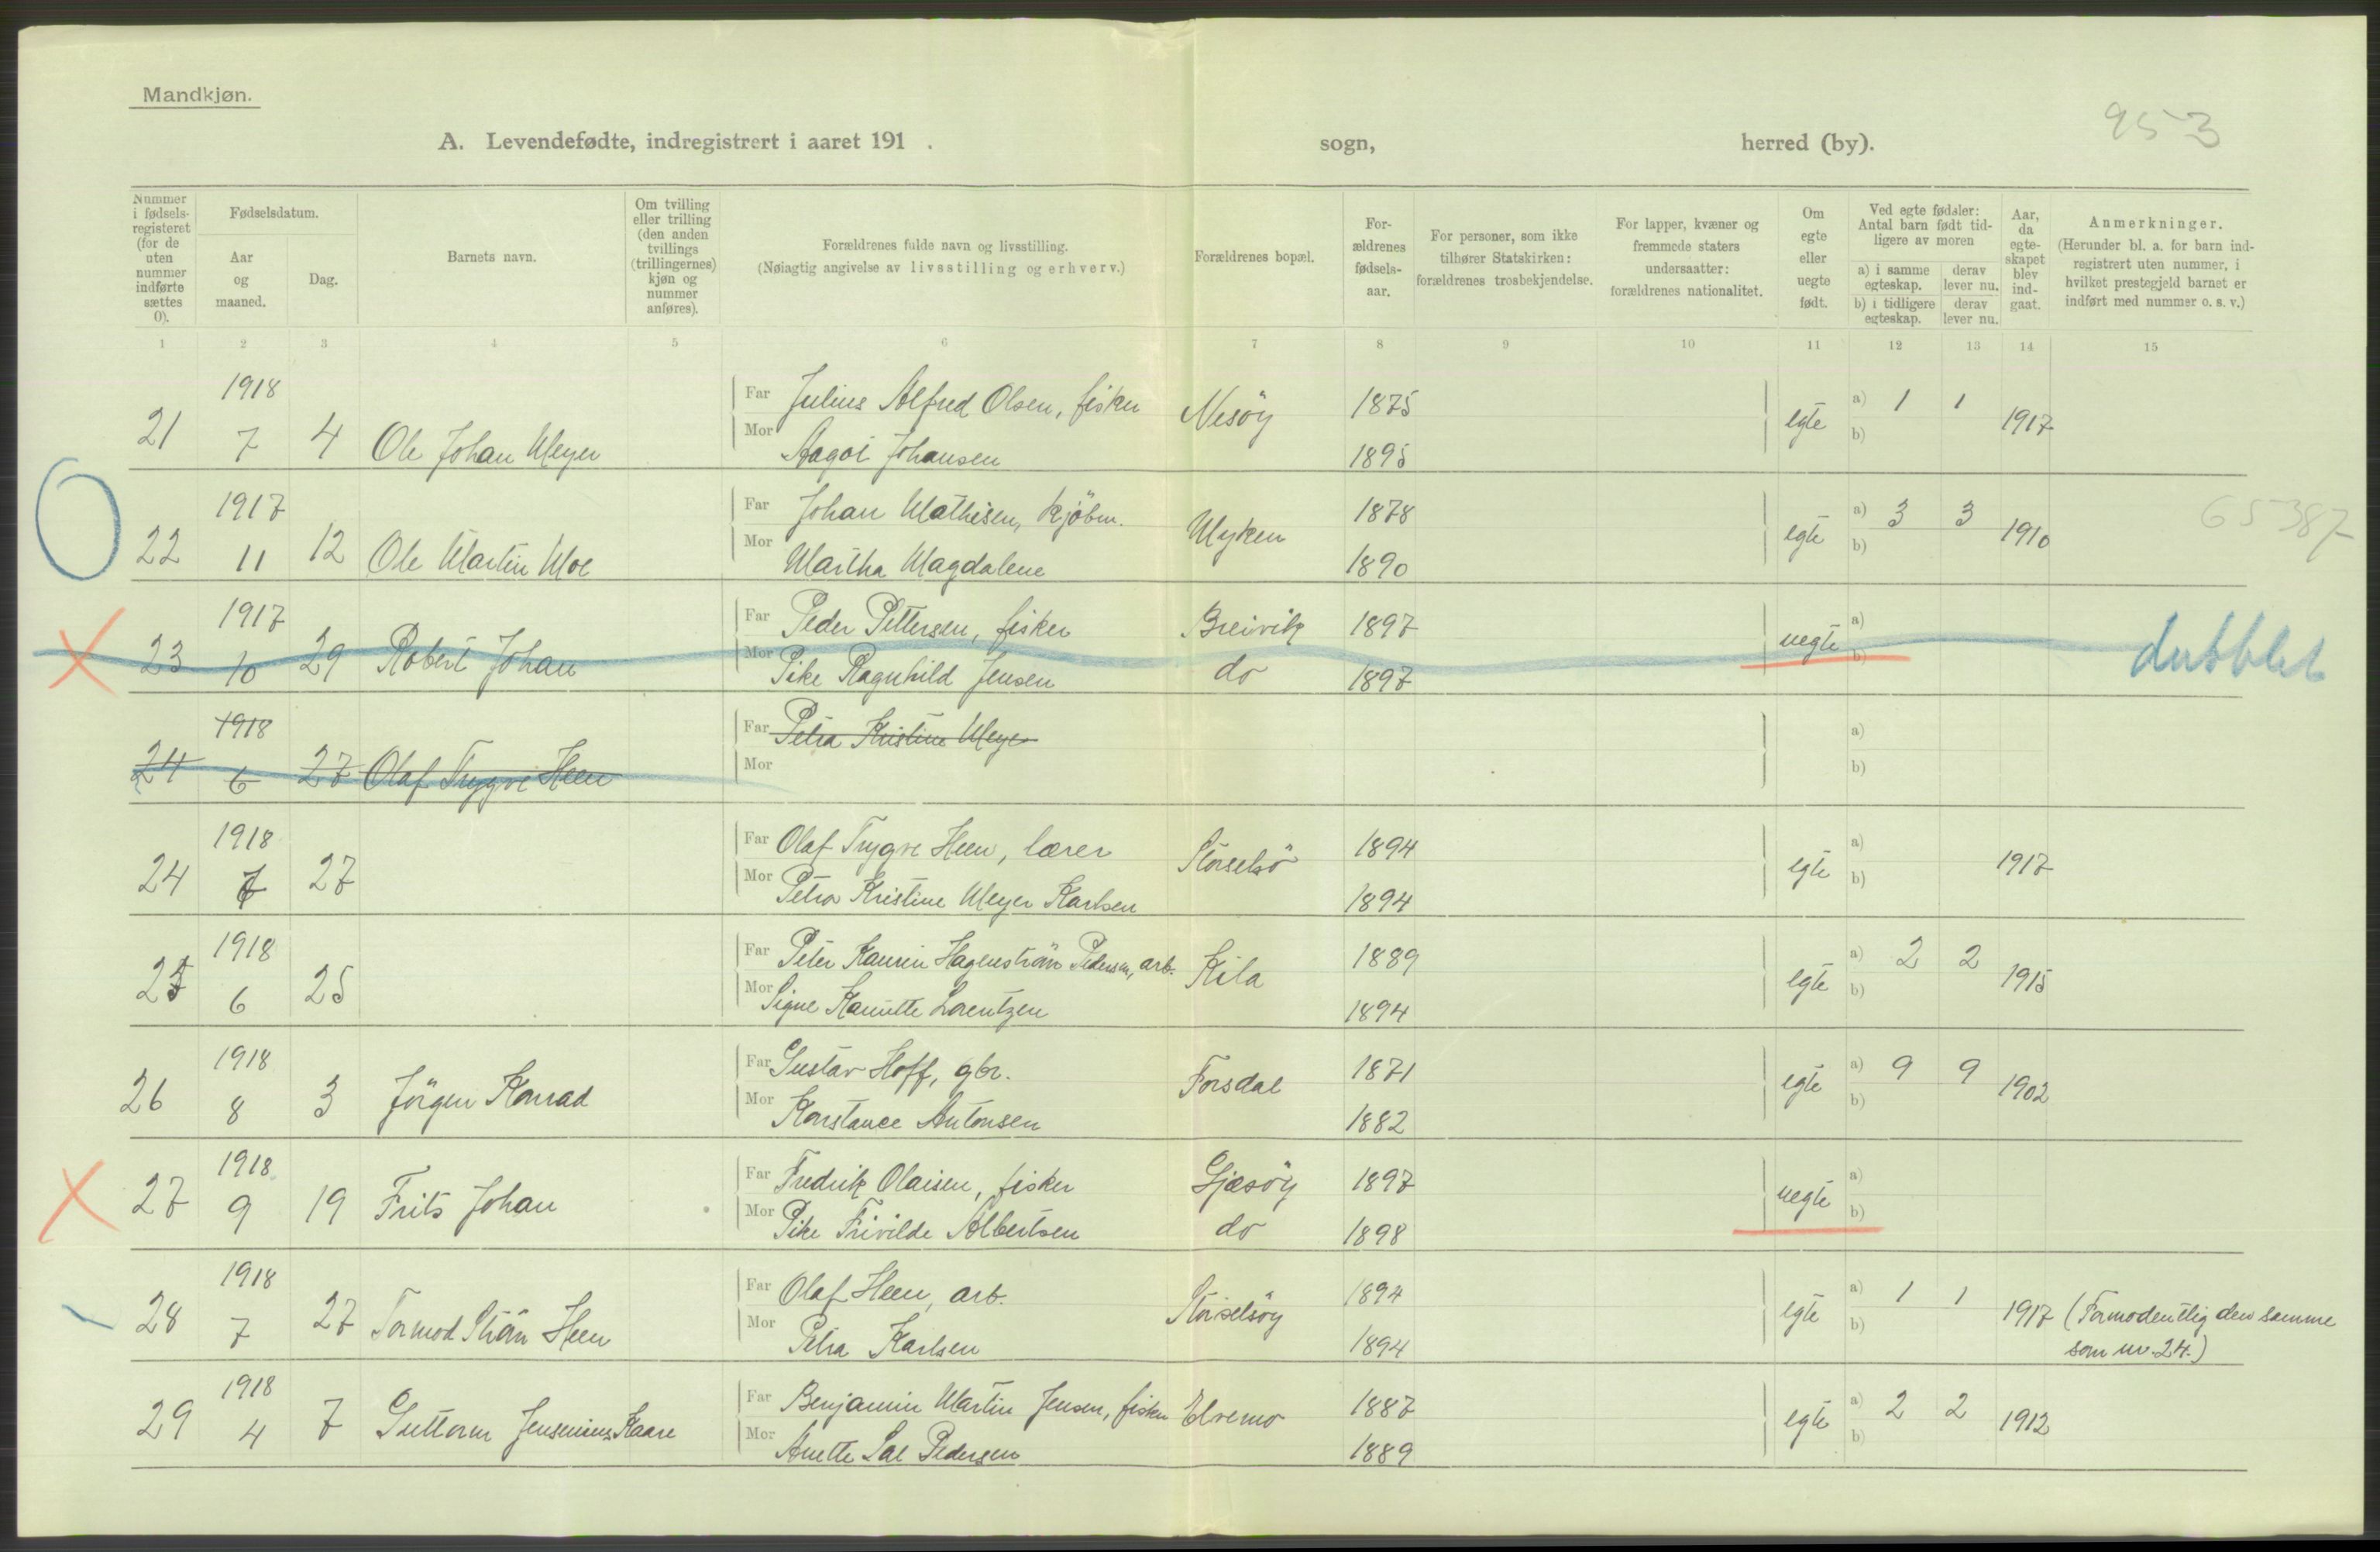 Mandkjøn.
953
A. Levendefødte, indregistrert i aaret 191 . sogn, herred (by).
Nummer i fødsels-registeret (for de uten nummer indførte sættes 0).
Fødselsdatum.
Aar og maaned.
Dag.
Barnets navn.
Om tvilling eller trilling (den anden tvillings (trillingernes) kjøn og nummer anføres).
Forældrenes fulde navn og livsstilling.
(Nøiagtig angivelse av livsstilling og erhverv.)
Forældrenes bopæl.
For-ældrenes fødsels-aar.
For personer, som ikke tilhører Statskirken: forældrenes trosbekjendelse.
For lapper, kvæner og fremmede staters undersaatter: forældrenes nationalitet.
Om egte eller uegte født.
Ved egte fødsler: Antal barn født tid-ligere av moren
a) i samme egteskap.
derav lever nu.
b) i tidligere egteskap.
derav lever nu.
Aar, da egte-skapet blev ind-gaat.
Anmerkninger.
(Herunder bl. a. for barn ind-registrert uten nummer, i hvilket prestegjeld barnet er indført med nummer o. s. v.)
1 2 3 4 5 6 7 8 9 10 11 12 13 14 15
1918 Far Julius Alfred Olsen, fisker Nesöy 1875 egte a) 1 1 1917
21 7 4 Ole Johan Meyer Mor Aagot Johansen 1895 b)
1917 Far Johan Mathisen, kjöbm. Myken 1878 egte a) 3 3 1910 65387
22 11 12 Ole Martin Moe Mor Martha Magdalene 1890 b)
1917 Far Peder Pettersen, fisker Breivik 1897 uegte a)
23 10 29 Robert Johan Mor Pike Ragnhild Jensen do 1897 b) dubblet
1918 Far Petra Kristine Meyer a)
24 6 27 Olaf Trygve Heen Mor b)
1918 Far Olaf Trygve Heen, lærer Storselsö 1894 egte a) 1917
24 7 27 Mor Petra Kristine Meyer Karlsen 1894 b)
1918 Far Peter Kaurin Hagenström Pedersen, arb. Kila 1889 egte a) 2 2 1915
25 6 25 Mor Signe Lorentzen 1894 b)
1918 Far Gustav Hoff, gbr. Forsdal 1871 egte a) 9 9 1902
26 8 3 Jörgen Konrad Mor Konstance Antonsen 1882 b)
1918 Far Fredrik Olaisen, fisker Gjæsöy 1897 uegte a)
27 9 19 Frits Johan Mor Pike Frivilde Albertsen do 1898 b)
1918 Far Olaf Heen, arb. Storselsöy 1894 egte a) 1 1 1917 (Formodentlig den samme
28 7 27 Tormod Ström Heen Mor Petra Karlsen 1894 b) som nr. 24.)
1918 Far Benjamin Martin Jensen, fisker Elvemo 1887 egte a) 2 2 1912
29 4 7 Guttorm Jensenius Kaare Mor Anette Pedersen 1889 b)